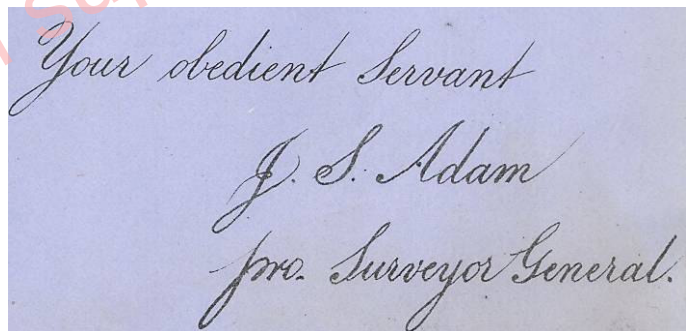 Your obedient Servant
J. S. Adam
pro. Surveyor General.